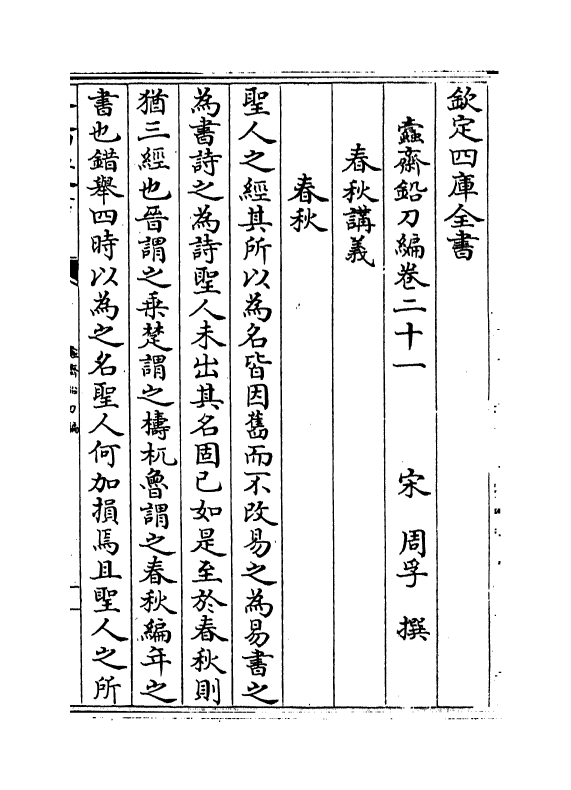 欽定四庫全書
蠧齋鉛刀編卷二十一　宋　周孚　撰
春秋講義
春秋
聖人之經其所以為名皆因舊而不改易之為易書之
為書詩之為詩聖人未出其名固已如是至於春秋則
猶三經也晉謂之乗楚謂之檮杌魯謂之春秋編年之
書也錯舉四時以為之名聖人何加損焉且聖人之所